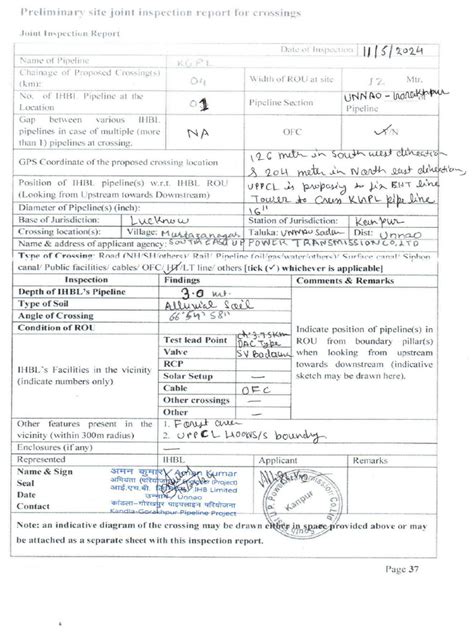 Preliminary site joint inspection report for crossings
Joint Inspection Report
Date of Inspection 11/5/2024
Name of Pipeline KGPL
Chainage of Proposed Crossing(s) (km): 04 Width of ROU at site 12 Mtr.
No. of IHBL Pipeline at the Location 01 Pipeline Section UNNAO - Pipeline
Gap between various IHBL pipelines in case of multiple (more than 1) pipelines at crossing. NA OFC Y/N
GPS Coordinate of the proposed crossing location 126 meter in South west direction
& 204 meter in North east direction
Position of IHBL pipeline(s) w.r.t. IHBL ROU (Looking from Upstream towards Downstream) UPPCL is proposing to fix EHT line
Tower to Cross pipe line
Diameter of Pipeline(s) (inch): 16"
Base of Jurisdiction: Lucknow Station of Jurisdiction: Kanpur
Crossing location(s): Village: Murtazanagar Taluka: UNNAO Sadar Dist: Unnao
Name & address of applicant agency: SOUTH UP POWER TRANSMISSION CO. LTD
Type of Crossing: Road (NH/SH/others)/ Rail/ Pipeline (oil/gas/water/others)/ Surface canal/ Siphon
canal/ Public facilities/ cables/ OFC/ HT/LT line/ others [tick (✓) whichever is applicable]
Inspection Findings Comments & Remarks
Depth of IHBL's Pipeline 3.0 mt.
Type of Soil Alluvial Soil
Angle of Crossing 66° 54' 58"
Condition of ROU
IHBL's Facilities in the vicinity (indicate numbers only)
Test lead Point ch-3.75km DAC Type
Valve SV Badarn
RCP —
Solar Setup —
Cable OFC
Other crossings —
Other —
Indicate position of pipeline(s) in ROU from boundary pillar(s) when looking from upstream towards downstream (indicative sketch may be drawn here).
Other features present in the vicinity (within 300m radius) 1. Forest area
2. UPPCL S/S boundry
Enclosures (if any) —
Represented IHBL Applicant Remarks
Name & Sign
Seal
Date
Contact
अमन कुमार/Aman Kumar
अभियंता (परियोजना)/ (Project)
आई.एच.बी. लिमिटेड/ IHB Limited
उन्नाव/Unnao
कांडला-गोरखपुर पाइपलाइन परियोजना
Kandla-Gorakhpur Pipeline Project
Kanpur
Note: an indicative diagram of the crossing may be drawn either in space provided above or may
be attached as a separate sheet with this inspection report.
Page 37